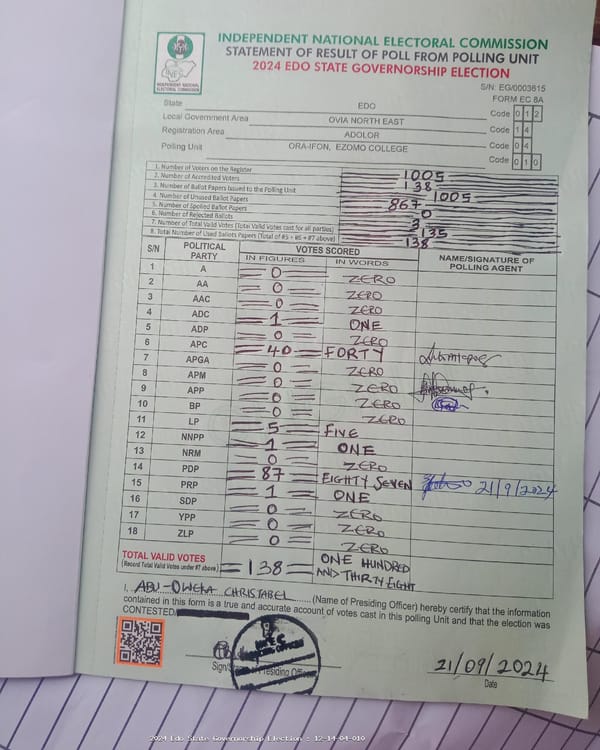 INDEPENDENT NATIONAL ELECTORAL COMMISSION
STATEMENT OF RESULT OF POLL FROM POLLING UNIT
2024 EDO STATE GOVERNORSHIP ELECTION
INDEPENDENT NATIONAL ELECTORAL COMMISSION
S/N: EG/0003615
FORM EC 8A
State EDO Code 0 1 2
Local Government Area OVIA NORTH EAST Code 1 4
Registration Area ADOLOR Code 0 4
Polling Unit ORA-IFON, EZOMO COLLEGE Code 0 1 0
1. Number of Voters on the Register 1005
2. Number of Accredited Voters 138
3. Number of Ballot Papers Issued to the Polling Unit 1005
4. Number of Unused Ballot Papers 867
5. Number of Spoiled Ballot Papers 0
6. Number of Rejected Ballots 3
7. Number of Total Valid Votes (Total Valid Votes cast for all parties) 135
8. Total Number of Used Ballots Papers (Total of #5 + #6 + #7 above) 138
S/N POLITICAL PARTY VOTES SCORED NAME/SIGNATURE OF POLLING AGENT
IN FIGURES IN WORDS
1 A 0 ZERO
2 AA 0 ZERO
3 AAC 0 ZERO
4 ADC 1 ONE
5 ADP 0 ZERO
6 APC 40 FORTY
7 APGA 0 ZERO
8 APM 0 ZERO
9 APP 0 ZERO
10 BP 0 ZERO
11 LP 5 FIVE
12 NNPP 1 ONE
13 NRM 0 ZERO
14 PDP 87 EIGHTY SEVEN 21/9/2024
15 PRP 1 ONE
16 SDP 0 ZERO
17 YPP 0 ZERO
18 ZLP 0 ZERO
TOTAL VALID VOTES
(Record Total Valid Votes under #7 above) 138 ONE HUNDRED AND THIRTY EIGHT
I, ABU-OWEKA CHRISTABEL (Name of Presiding Officer) hereby certify that the information
contained in this form is a true and accurate account of votes cast in this polling Unit and that the election was
CONTESTED/
21/09/2024
Date
2024 Edo State Governorship Election : 12-14-04-010